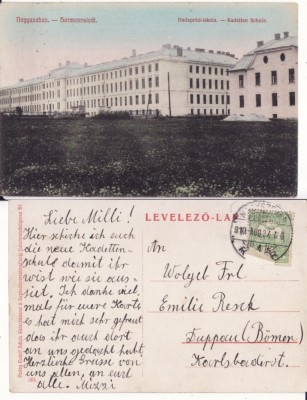 Nagyszeben. — Hermannstadt.
Hadapród-iskola. — Kadetten Schule.
LEVELEZŐ-LAP
Liebe Milli!
Hier schicke ich euch
die neue Kadetten-
schule damit ihr
wist wie sie aus-
siet. Ich danke viel-
mals für eure Karte
Es hat mich sehr gefreut
das ihr auch dort
an uns gedacht habt.
Herzliche Grüsse von
uns allen, an euch
alle. Mizzi
An
Frl
Emilie Resek
Duppau (Bömen)